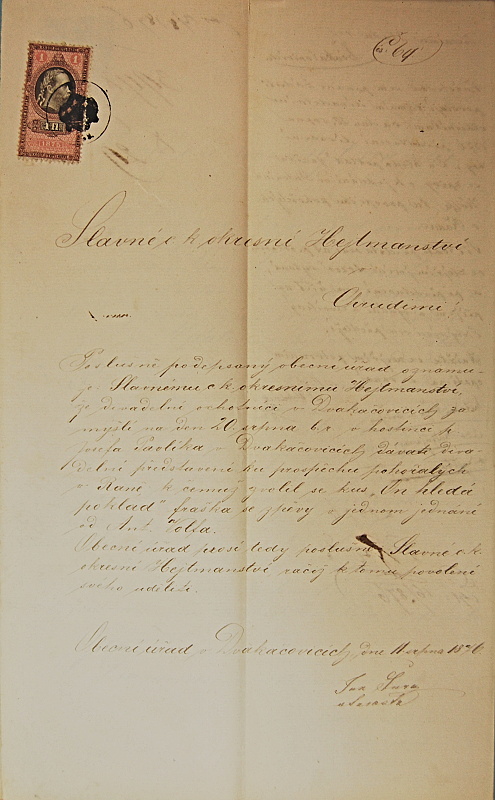 čs. 64
1 1
1875
Slavné c k okresní Hejtmanství
Chrudimi!
Poslušně podepsaný obecní úřad oznamu-
je Slavnému c k okresnímu Hejtmanství,
že divadelní ochotníci v Dvakačovicích za
myslí na den 20. srpna b.r. v hostinci p.
Josefa Pavlíka v Dvakačovicích dávati diva
delní představení ku prospěchu pohořalých
v Rané k čemuž zvolil se kus „On hledá
poklad" fraška se zpěvy v jednom jednání
od Ant.
Obecní úřad prosí tedy poslušně Slavné c.k.
okresní Hejtmanství račiž k tomu povolení
svého uděliti.
Obecní úřad v Dvakačovicích, dne 11 srpna 1876
Jan
starosta